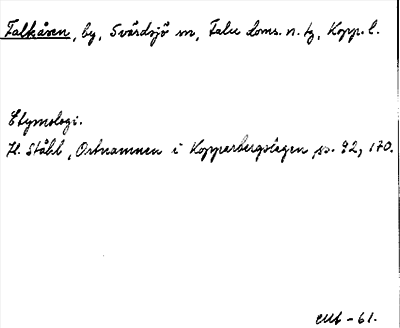 Falkåsen, by, Svärdsjö sn, Falu doms. n. tg, Kopp. l.
Etymologi.
H. Ståhl, Ortnamnen i Kopparbergslagen, s. 92, 170.
-61.